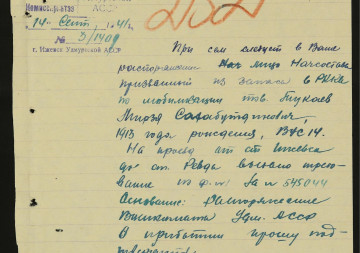 Комиссариата
АССР
14 Сент. 1941 г.
№ 3/1409
г. Ижевск Удмуртской АССР
232
При сем следует в Ваше
распоряжение
призванный из запаса в РККА
по мобилизации тов.
Мирза
1913 года рождения, ВУС 14.
На проезд от ст. Ижевск
до ст. Ревда выдано требо-
вание по ф. № 1 за № 545044
Основание: Распоряжение
Военкомата Удм. АССР
О прибытии прошу под-